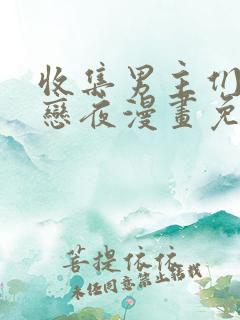 收集男主们
戀夜漫畫免
菩提依依
未经同意禁止转载